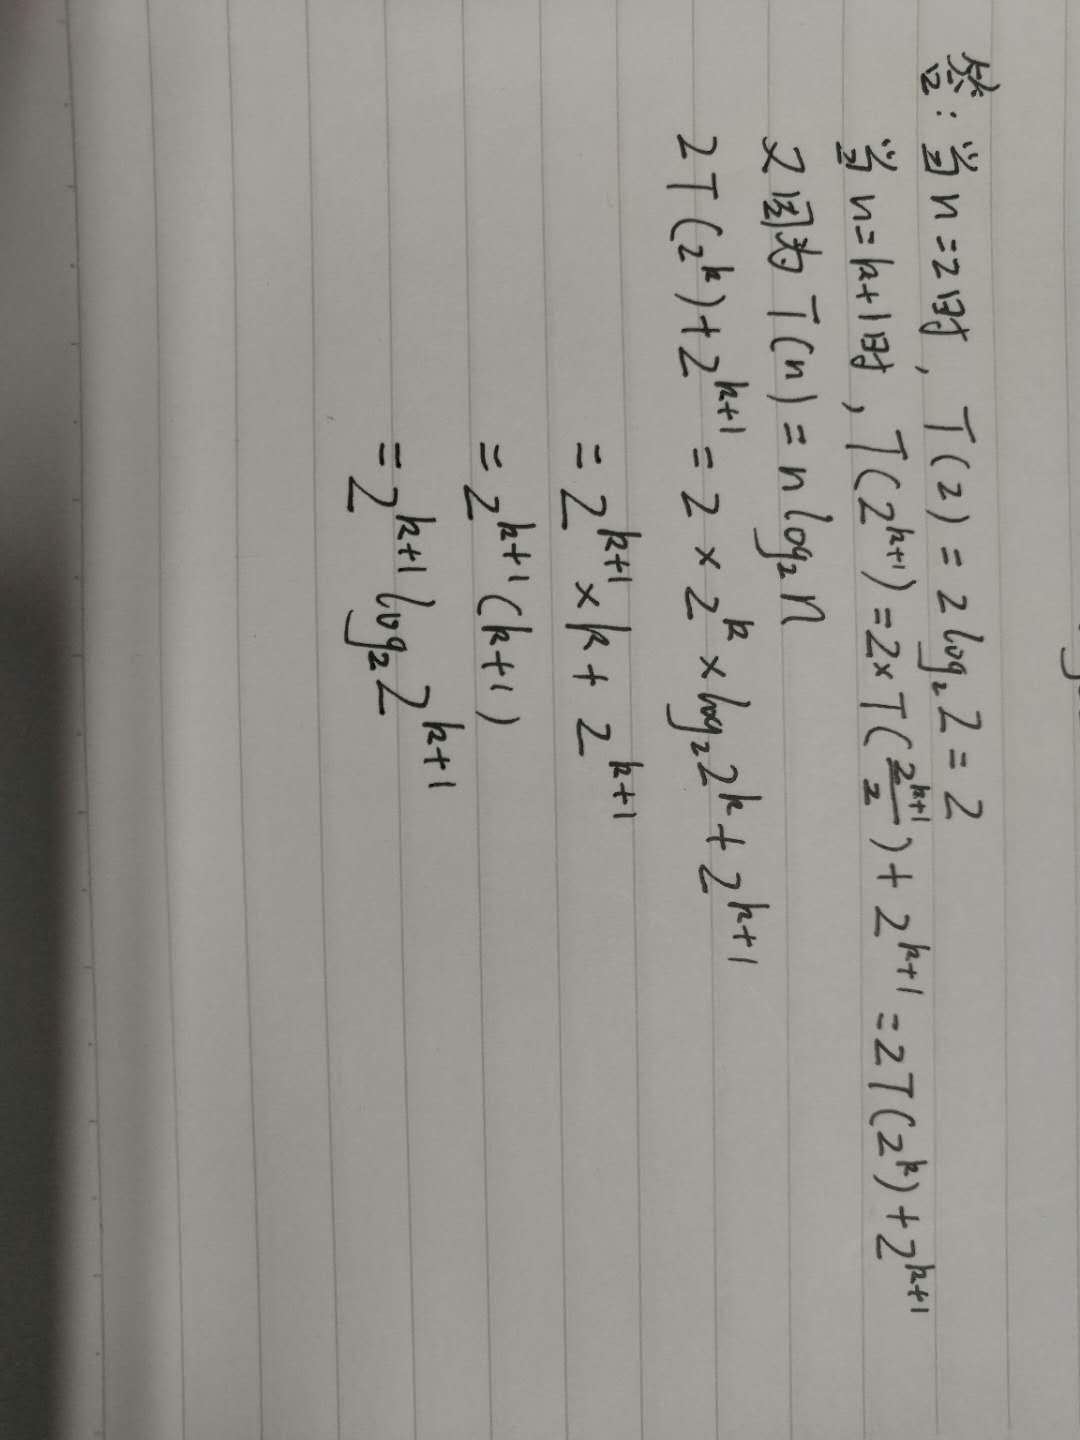 答：当n=2时，T(2)=2log₂2=2
当n=k+1时，T(2ᵏ⁺¹)=2×T(2ᵏ⁺¹/2)+2ᵏ⁺¹=2T(2ᵏ)+2ᵏ⁺¹
又因为T(n)=nlog₂n
2T(2ᵏ)+2ᵏ⁺¹=2×2ᵏ×log₂2ᵏ+2ᵏ⁺¹
=2ᵏ⁺¹×k+2ᵏ⁺¹
=2ᵏ⁺¹(k+1)
=2ᵏ⁺¹log₂2ᵏ⁺¹